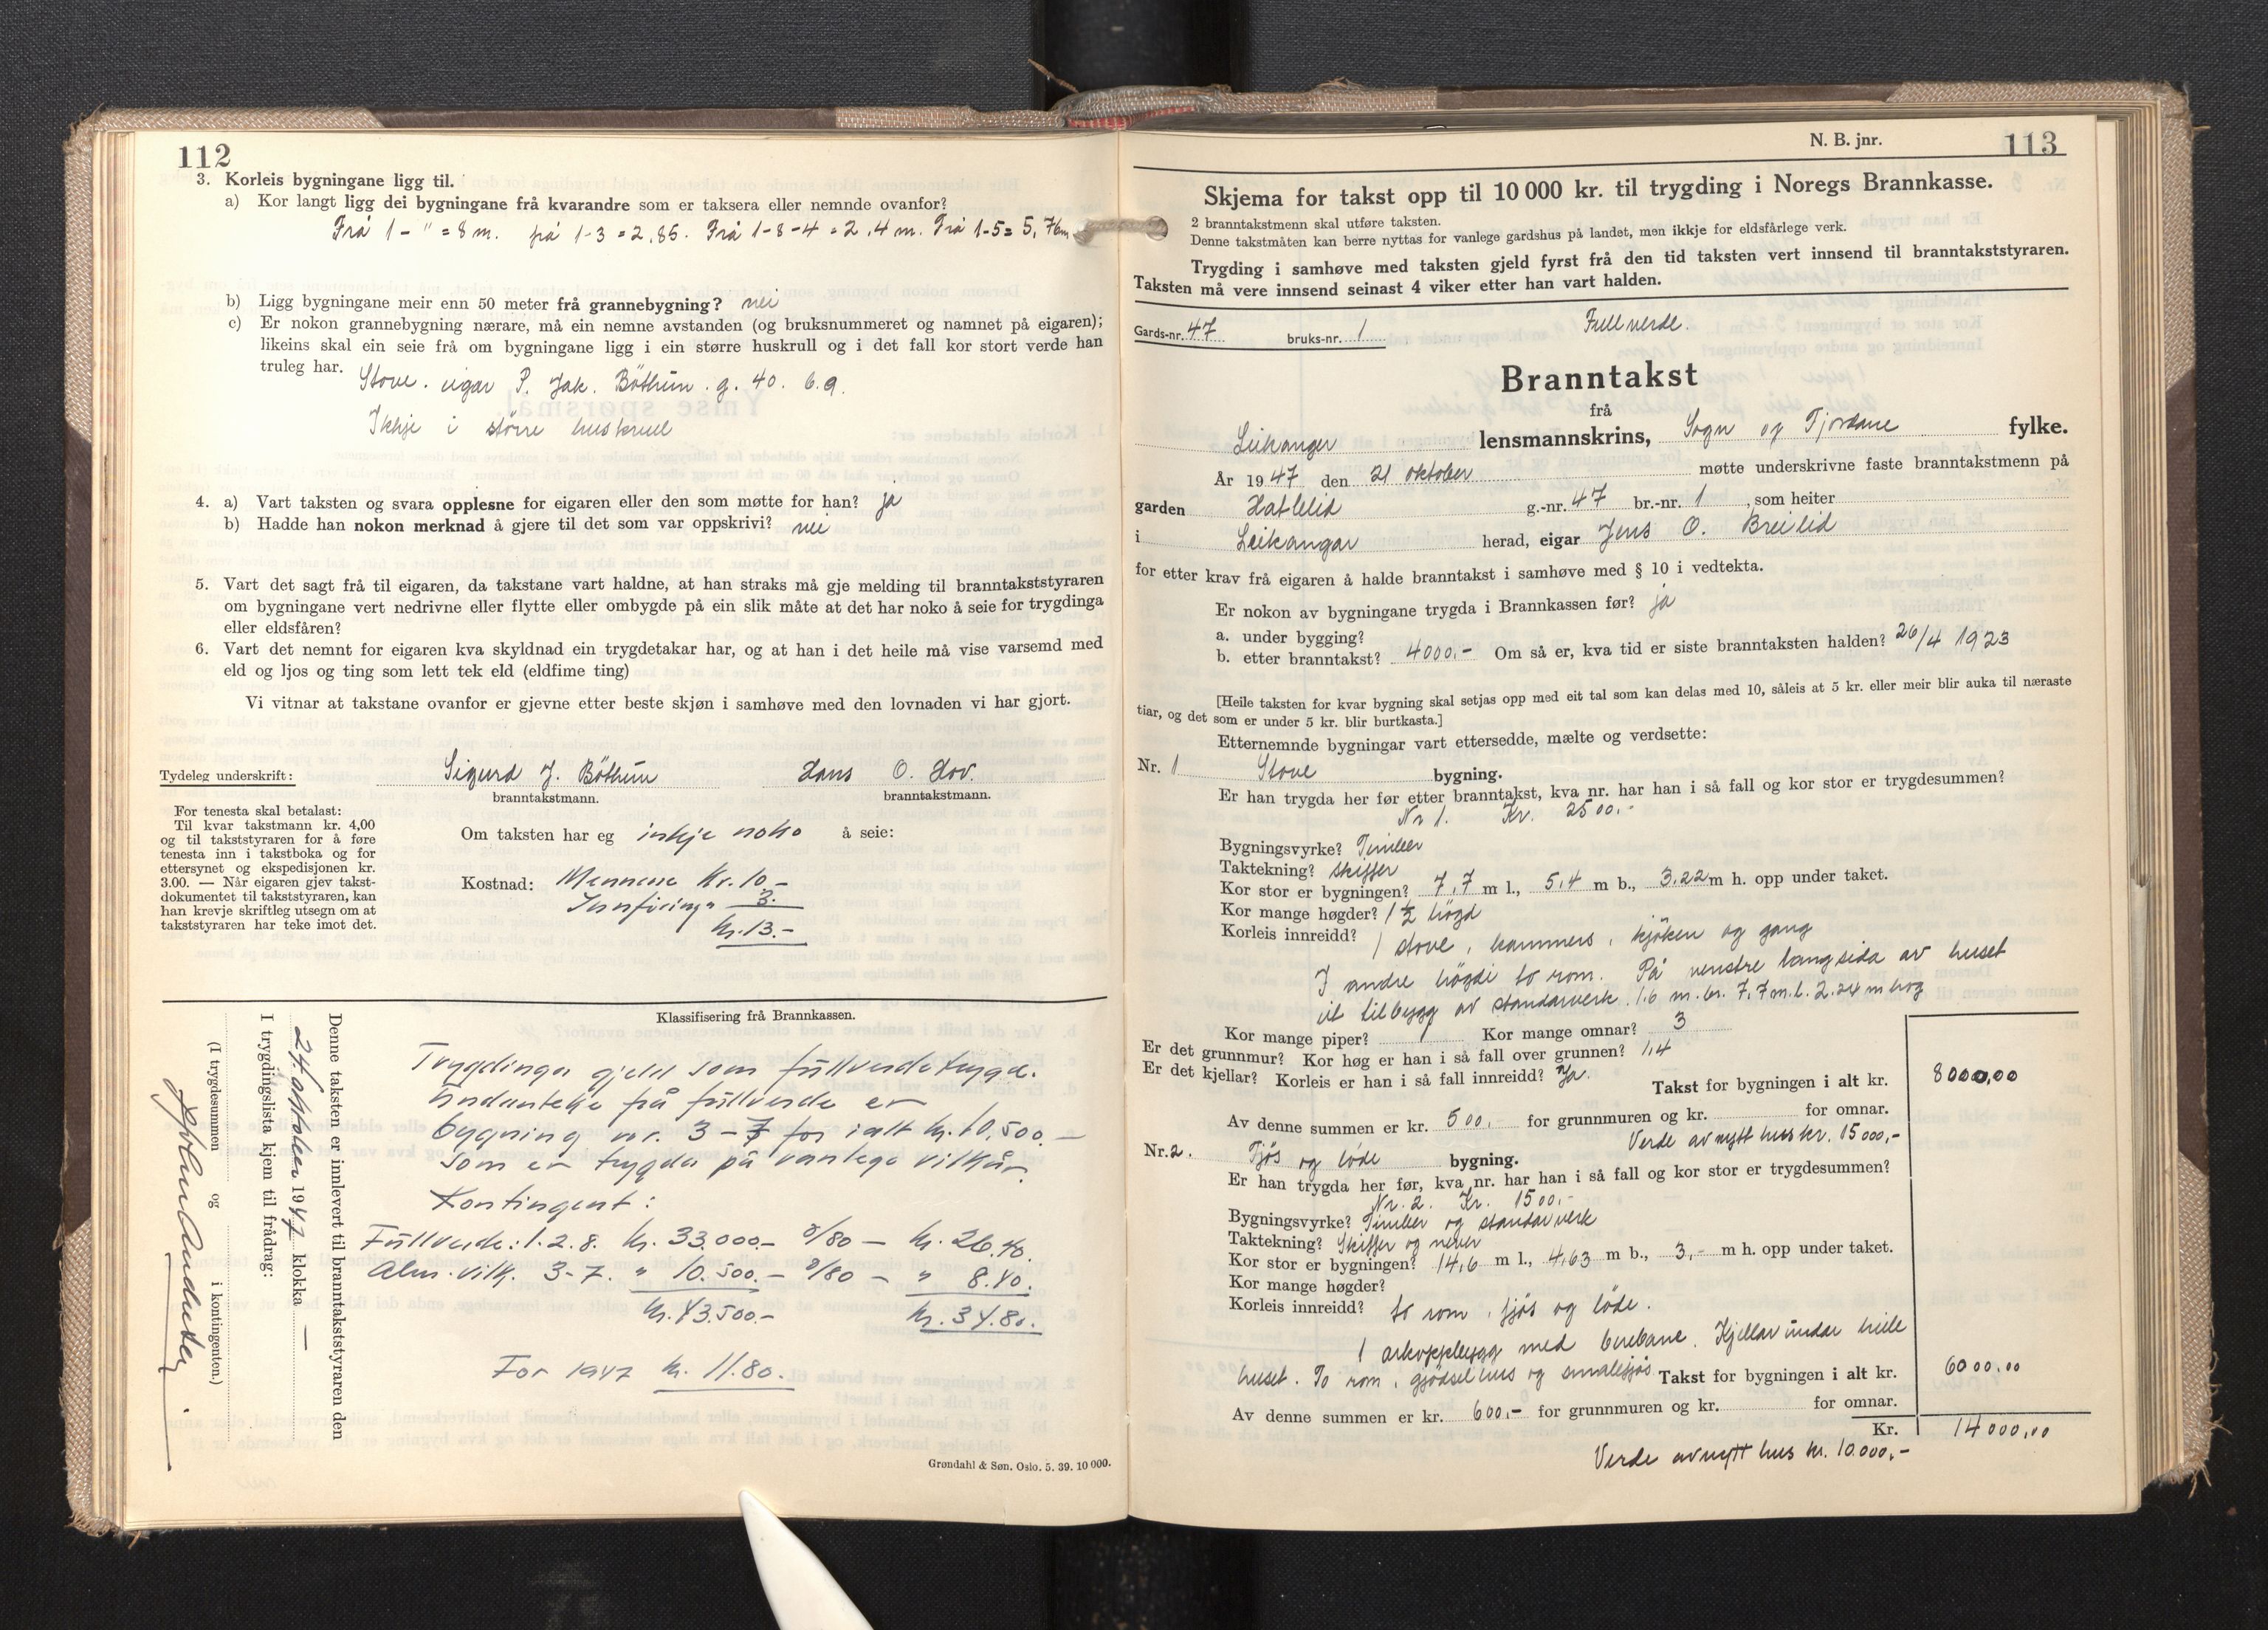 112
3. Korleis bygningane ligg til.
a) Kor langt ligg dei bygningane frå kvarandre som er taksera eller nemnde ovanfor?
Frå 1 - " = 8 m. frå 1-3 = 2,85. Frå 1-8-4 = 2,4 m. Frå 1-5 = 5,76m
b) Ligg bygningane meir enn 50 meter frå grannebygning? nei
c) Er nokon grannebygning nærare, må ein nemne avstanden (og bruksnummeret og namnet på eigaren);
likeins skal ein seie frå om bygningane ligg i ein større huskrull og i det fall kor stort verde han
truleg har.
Stove. eigar P. Jak. Bøthun. g. 40. b. 9.
Ikkje i större huskrull
4. a) Vart taksten og svara opplesne for eigaren eller den som møtte for han? ja
b) Hadde han nokon merknad å gjere til det som var oppskrivi? nei
5. Vart det sagt frå til eigaren, da takstane vart haldne, at han straks må gje melding til branntakststyraren
om bygningane vert nedrivne eller flytte eller ombygde på ein slik måte at det har noko å seie for trygdinga
eller eldsfåren?
6. Vart det nemnt for eigaren kva skyldnad ein trygdetakar har, og at han i det heile må vise varsemd med
eld og ljos og ting som lett tek eld (eldfime ting)
Vi vitnar at takstane ovanfor er gjevne etter beste skjøn i samhøve med den lovnaden vi har gjort.
Tydeleg underskrift: Sigurd J. Böthun Hans O. Hov.
branntakstmann. branntakstmann.
For tenesta skal betalast:
Til kvar takstmann kr. 4,00
og til takststyraren for å føre
tenesta inn i takstboka og for
ettersynet og ekspedisjonen kr.
3.00. — Når eigaren gjev takst-
dokumentet til takststyraren, kan
han krevje skriftleg utsegn om at
takststyraren har teke imot det.
Om taksten har eg inkje noko å seie:
Kostnad: Mennene Kr. 10.-
Innföring " 3.
kr. 13.-
Klassifisering frå Brannkassen.
Trygdinga gjeld som fullverdetrygd.
Undanteke frå fullverde er
bygning nr. 3-7 for ialt kr. 10.500.-
som er trygda på vanlege vilkår.
Kontingent:
Fullverde: 1. 2. 8. kr. 33.000.- 8/80 — kr. 26.40.
Alm. vilk. 3-7. " 10.500.- 8/80 — " 8.40.
kr. 43.500.- kr. 34.80.
For 1947 kr. 11.80.
Denne taksten er innlevert til branntakststyraren den
24 oktober 1947 klokka —
I trygdingslista kjem til frådrag:
(I trygdesummen og i kontingenten.)
Grøndahl & Søn. Oslo. 5. 39. 10 000.
N. B. jnr. 113
Skjema for takst opp til 10 000 kr. til trygding i Noregs Brannkasse.
2 branntakstmenn skal utføre taksten.
Denne takstmåten kan berre nyttas for vanlege gardshus på landet, men ikkje for eldsfårlege verk.
Trygding i samhøve med taksten gjeld fyrst frå den tid taksten vert innsend til branntakststyraren.
Taksten må vere innsend seinast 4 viker etter han vart halden.
Gards-nr. 47 bruks-nr. 1 Fullverde.
Branntakst
frå
Leikanger lensmannskrins, Sogn og Fjordane fylke.
År 1947 den 21 oktober møtte underskrivne faste branntakstmenn på
garden Hatlelid g.-nr. 47 br.-nr. 1, som heiter
i Leikangar herad, eigar Jens O. Breilid
for etter krav frå eigaren å halde branntakst i samhøve med § 10 i vedtekta.
Er nokon av bygningane trygda i Brannkassen før? ja
a. under bygging?
b. etter branntakst? 4000.- Om så er, kva tid er siste branntaksten halden? 26/4 1923
[Heile taksten for kvar bygning skal setjas opp med eit tal som kan delas med 10, såleis at 5 kr. eller meir blir auka til næraste
tiar, og det som er under 5 kr. blir burtkasta.]
Etternemnde bygningar vart ettersedde, mælte og verdsette:
Nr. 1 Stove bygning.
Er han trygda her før etter branntakst, kva nr. har han i så fall og kor stor er trygdesummen?
Nr 1. Kr. 2500.-
Bygningsvyrke? Timber
Taktekning? Skiffer
Kor stor er bygningen? 7,7 m l., 5,4 m b., 3,22 m h. opp under taket.
Kor mange høgder? 1 ½ högd
Korleis innreidd? 1 stove, kammers, kjöken og gang
I andre högdi to rom. På venstre langsida av huset
eit tilbygg av standarverk. 1.6 m. br. 7,7 m. l. 2.24 m høg
Kor mange piper? 1 Kor mange omnar? 3
Er det grunnmur? Kor høg er han i så fall over grunnen? 1,4
Er det kjellar? Korleis er han i så fall innreidd? Ja.
Takst for bygningen i alt kr. 8000,00
Av denne summen er kr. 500. for grunnmuren og kr. for omnar.
Verde av nytt hus kr. 15000,-
Nr. 2. Fjös og löde bygning.
Er han trygda her før, kva nr. har han i så fall og kor stor er trygdesummen?
Nr. 2. Kr. 1500.-
Bygningsvyrke? Timber og standarverk
Taktekning? Skiffer og never
Kor stor er bygningen? 14,6 m l., 4,63 m b., 3,- m h. opp under taket.
Kor mange høgder?
Korleis innreidd? to rom, fjös og löde.
1 arkoppbygg med berebane. Kjellar undar heile
huset. To rom, gjödselhus og smalefjös
Takst for bygningen i alt kr. 6000,00
Av denne summen er kr. 600.- for grunnmuren og kr. for omnar.
Kr. 14000,00
Verde av nytt hus kr. 10.000,-